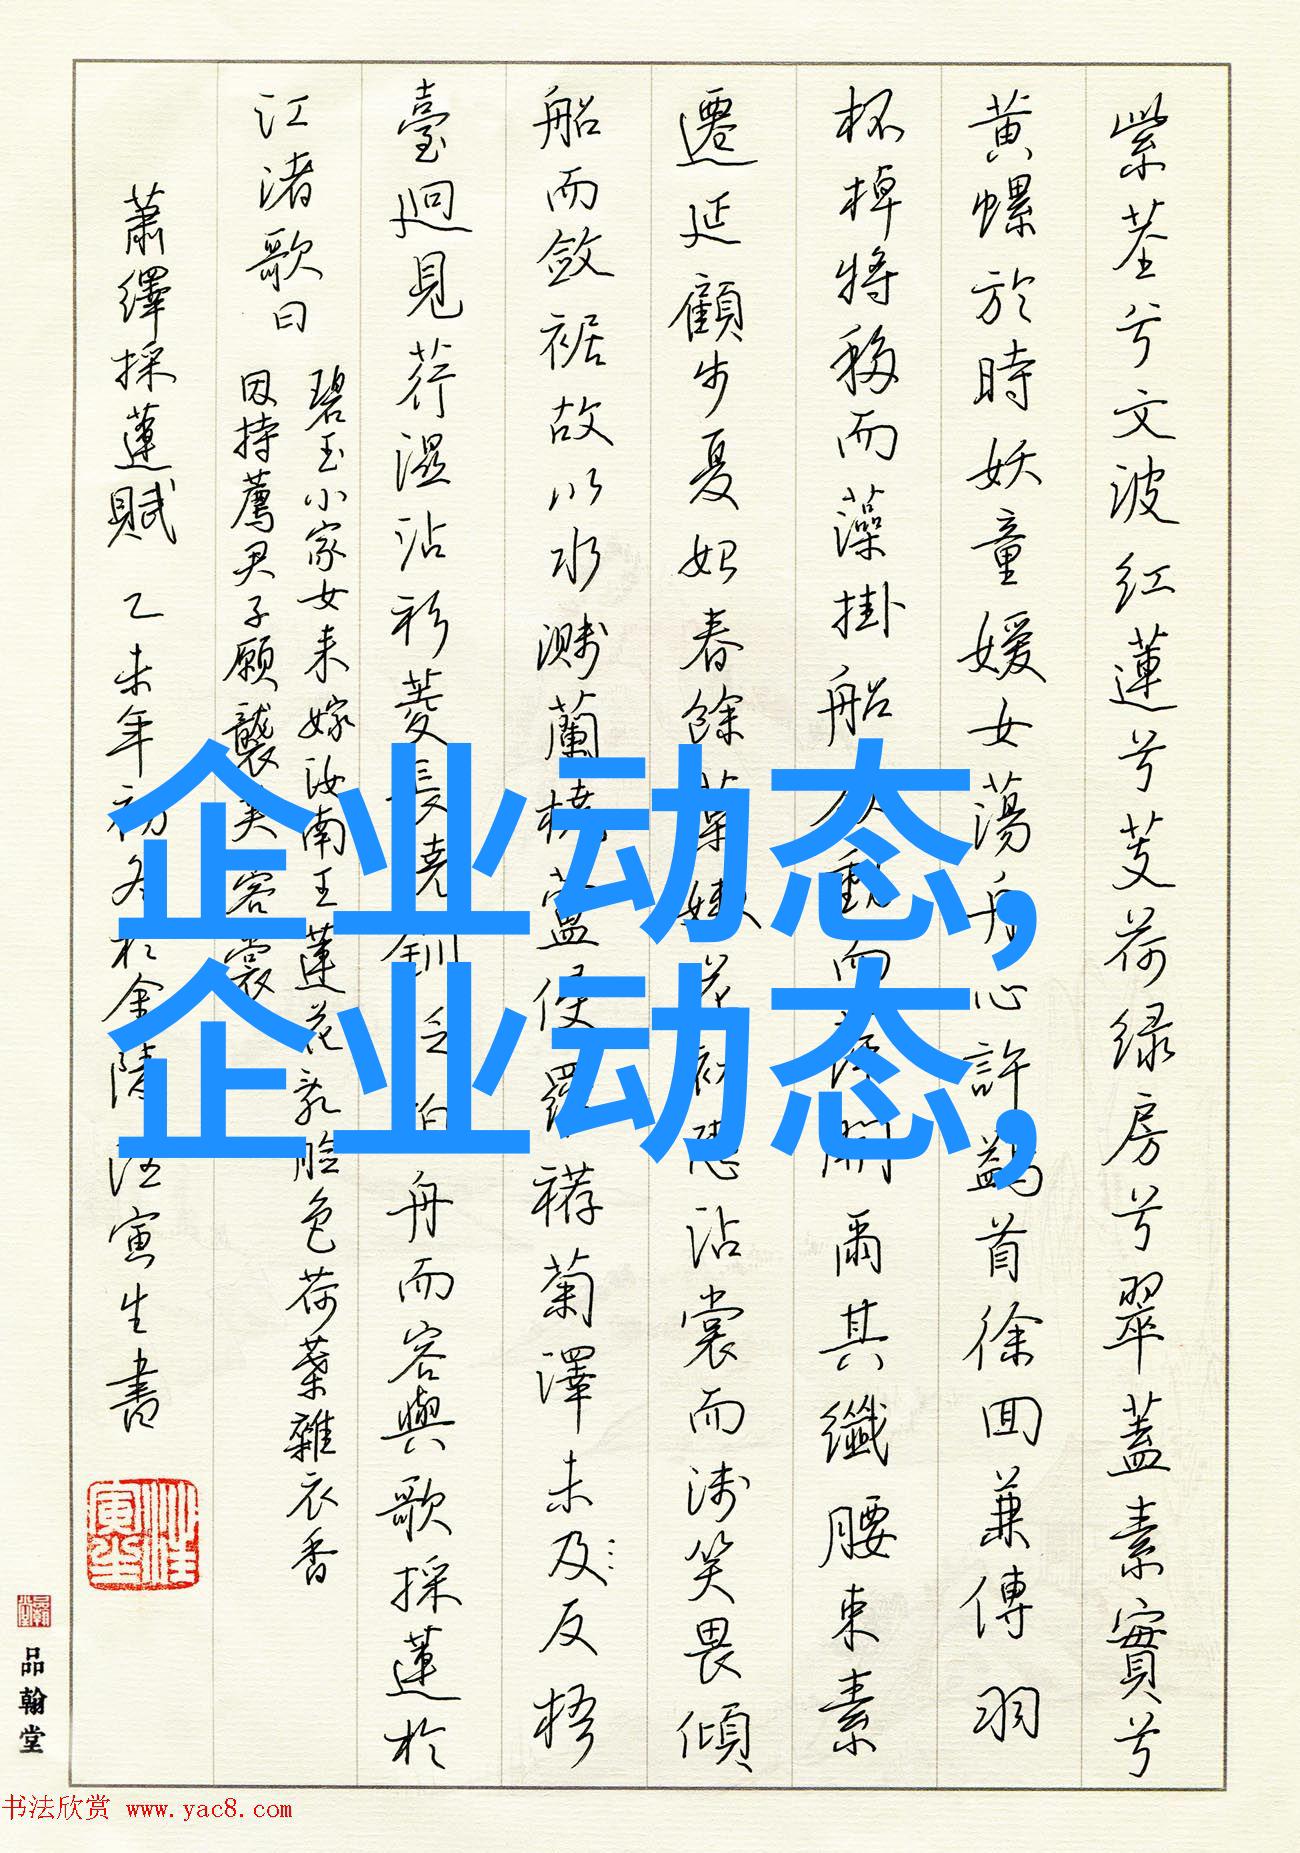 紫茎兮文波红蓮兮芰荷绿房兮翠蓋素實兮
黄螺於時妖童媛女蕩舟心許鷁首徐回兼傳羽
杯棹將移而藻掛船動而開爾其纖腰束素
遷延顧步夏始春餘葉嫩花初恐沾裳而淺笑畏傾
船而斂裾故以水濺蘭橈蘆侵羅䙀菊澤未及反梧
臺迴見荇濕沾衫菱長繞釧泛泊舟而容與歌採蓮於
江渚歌曰
碧玉小家女来嫁汝南王蓮花亂臉色荷葉雜衣香
因持薦君子願襲芙容裳
蕭繹採蓮賦 乙未年初冬於金陵汪寅生書
汪寅生
品翰堂
企业动态,
企业动态,
书法欣赏 www.yac8.com